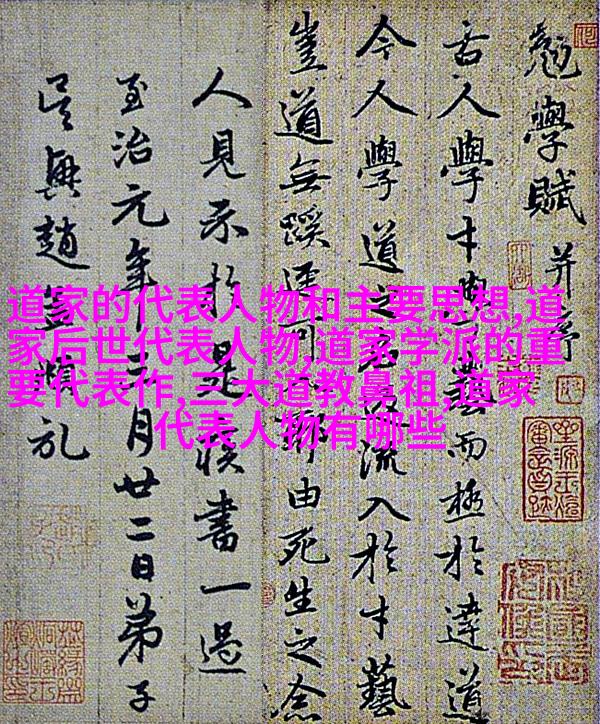 勉學賦并序
古人學才藝而極於達道
今人學道之流入於才藝
豈道無蹊逕可由死生之念
人見示於是書一過
至治元年月廿二日弟子
吳興趙孟頫
道家的代表人物和主要思想,道
家后世代表人物,道家学派的重
要代表作,三大道教鼻祖,道家
代表人物有哪些